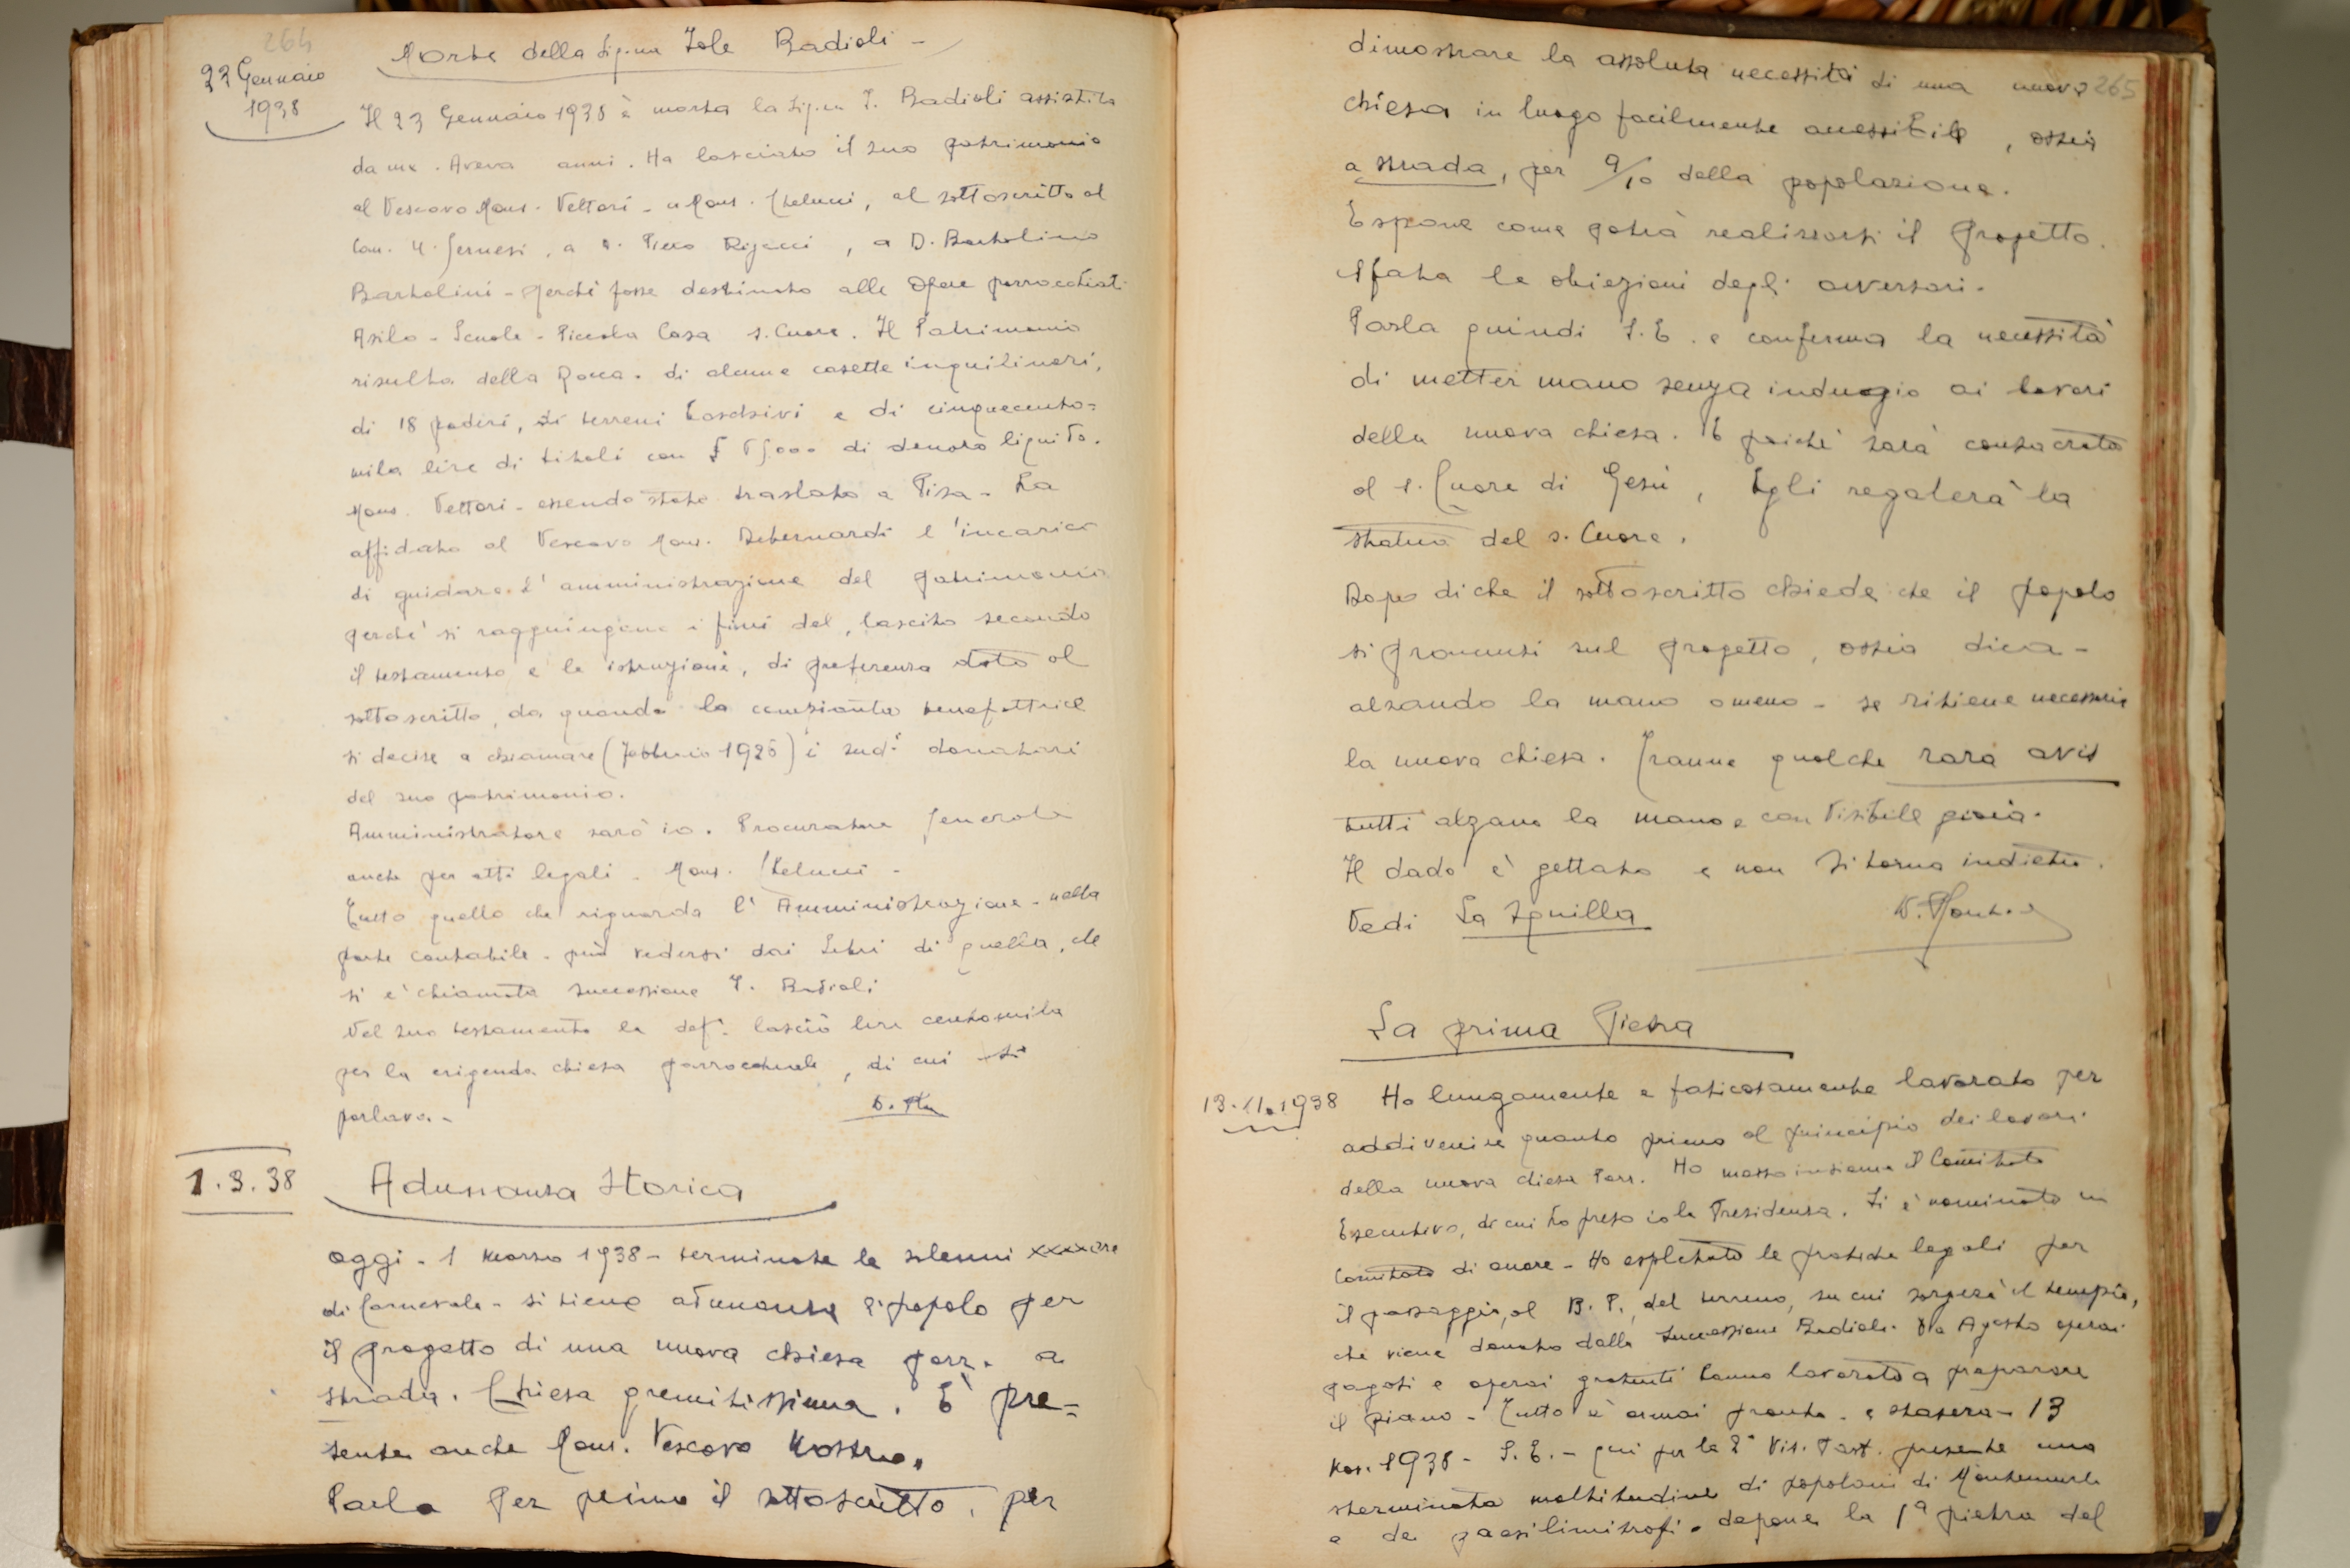 264
Morte della Sig.na Iole Badioli -
23 Gennaio
1938
Il 23 Gennaio 1938 è morta la Sig.na I. Badioli assistita
da me. Aveva anni. Ha lasciato il suo patrimonio
al Vescovo Mons. Vettori - a Mons. Chelucci, al sottoscritto al
Can. U. , a D. Piero , a D. Bartolino
Bartolini - perché fosse destinato alle Opere parrocchiali
Asilo - Scuole - Piccola Casa S. Cuore. Il Patrimonio
risulta della Rocca - di alcune casette inquilinari,
di 18 poderi, di terreni boschivi e di cinquecento=
mila lire di titoli con £ di denaro liquido.
Mons. Vettori - essendo stato traslato a Pisa - ha
affidato al Vescovo Mons. Debernardi l'incarico
di guidare l'amministrazione del patrimonio
perché si raggiungano i fini del lascito secondo
il testamento e le istruzioni, di preferenza date al
sottoscritto, da quando la compianta benefattrice
si decise a chiamare (Febbraio 1926) i sudi donatari
del suo patrimonio.
Amministratore sarò io. Procuratore generale
anche per atti legali - Mons. Chelucci -
Tutto quello che riguarda l'Amministrazione - nella
parte contabile - può vedersi dai Libri di quella, che
si è chiamata Successione I. Badioli
Nel suo testamento la def. lasciò lire centomila
per la erigenda chiesa parrocchiale, di cui si
parlava -
1.3.38
Adunanza Storica
Oggi - 1 Marzo 1938 - terminate le solenni xxxxore
di Carnevale - si tiene adunanza di popolo per
il progetto di una nuova chiesa parr. a
strada. Chiesa gremitissima. È pre=
sente anche Mons. Vescovo Nostro.
Parla per primo il sottoscritto, per
265
dimostrare la assoluta necessità di una nuova
chiesa in luogo facilmente accessibile, ossia
a strada, per 9/10 della popolazione.
Espone come potrà realizzarsi il progetto.
Sfata le obiezioni degli avversari.
Parla quindi S. E. e conferma la necessità
di metter mano senza indugio ai lavori
della nuova chiesa. E poiché sarà consacrata
al S. Cuore di Gesù, Egli regalerà la
statua del S. Cuore.
Dopo di che il sottoscritto chiede che il popolo
si pronunzi sul progetto, ossia dica -
alzando la mano o meno - se ritiene necessaria
la nuova chiesa. Tranne qualche rara avis
tutti alzano la mano e con visibile gioia.
Il dado è gettato e non si torna indietro.
Vedi La Squilla
La prima Pietra
13.11.1938
Ho lungamente e faticosamente lavorato per
addivenire quanto prima al principio dei lavori
della nuova chiesa Parr. Ho messo insieme il Comitato
Esecutivo, di cui ho preso io la Presidenza. Si è nominato un
Comitato di onore - Ho espletato le pratiche legali per
il passaggio, al B. P., del terreno, su cui sorgerà il tempio,
che viene donato dalla Successione Badioli. Da Agosto operai
pagati e operai gratuiti hanno lavorato a preparare
il piano - Tutto è ormai pronto - e stasera - 13
Nov. 1938 - S. E. - qui per la 2ª Vis. Past. presente una
sterminata moltitudine di popolani di Montemurlo
e dei paesi limitrofi - depone la 1ª pietra del